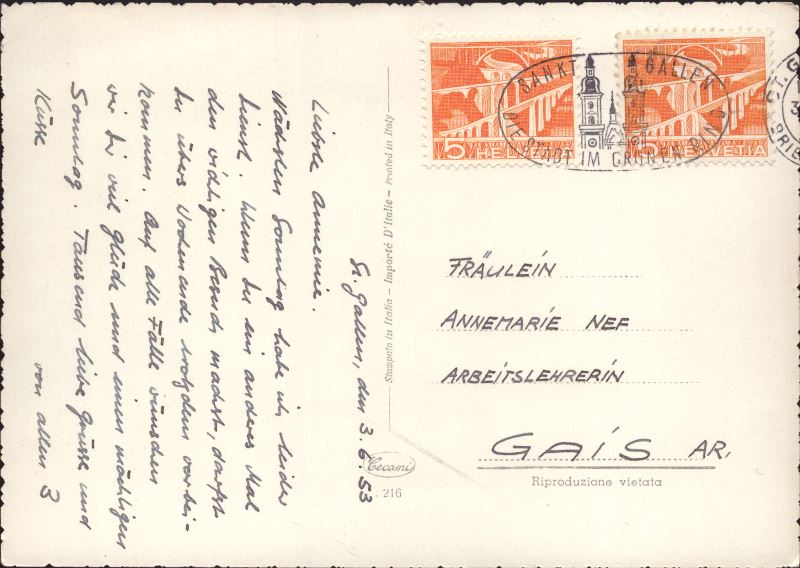 St. Gallen, den 3.6.53
Liebste Annemie.
Nächsten Sonntag habe ich leider
Dienst. Wenn Du ein anderes Mal
den wichtigen Besuch machst, darfst
Du übers Wochenende trotzdem vorbei-
kommen. Auf alle Fälle wünschen
wir Dir viel Glück und einen
Sonntag. Tausend liebe Grüsse und
Küsse
von allen 3
Stampato in Italia - Importé D'Italie - Printed in Italy
Cecami
216
5 HELVETIA
5 HELVETIA
SANKT GALLEN
DIE STADT IM GRÜNEN RING
FRÄULEIN
ANNEMARIE NEF
ARBEITSLEHRERIN
GAIS AR.
Riproduzione vietata